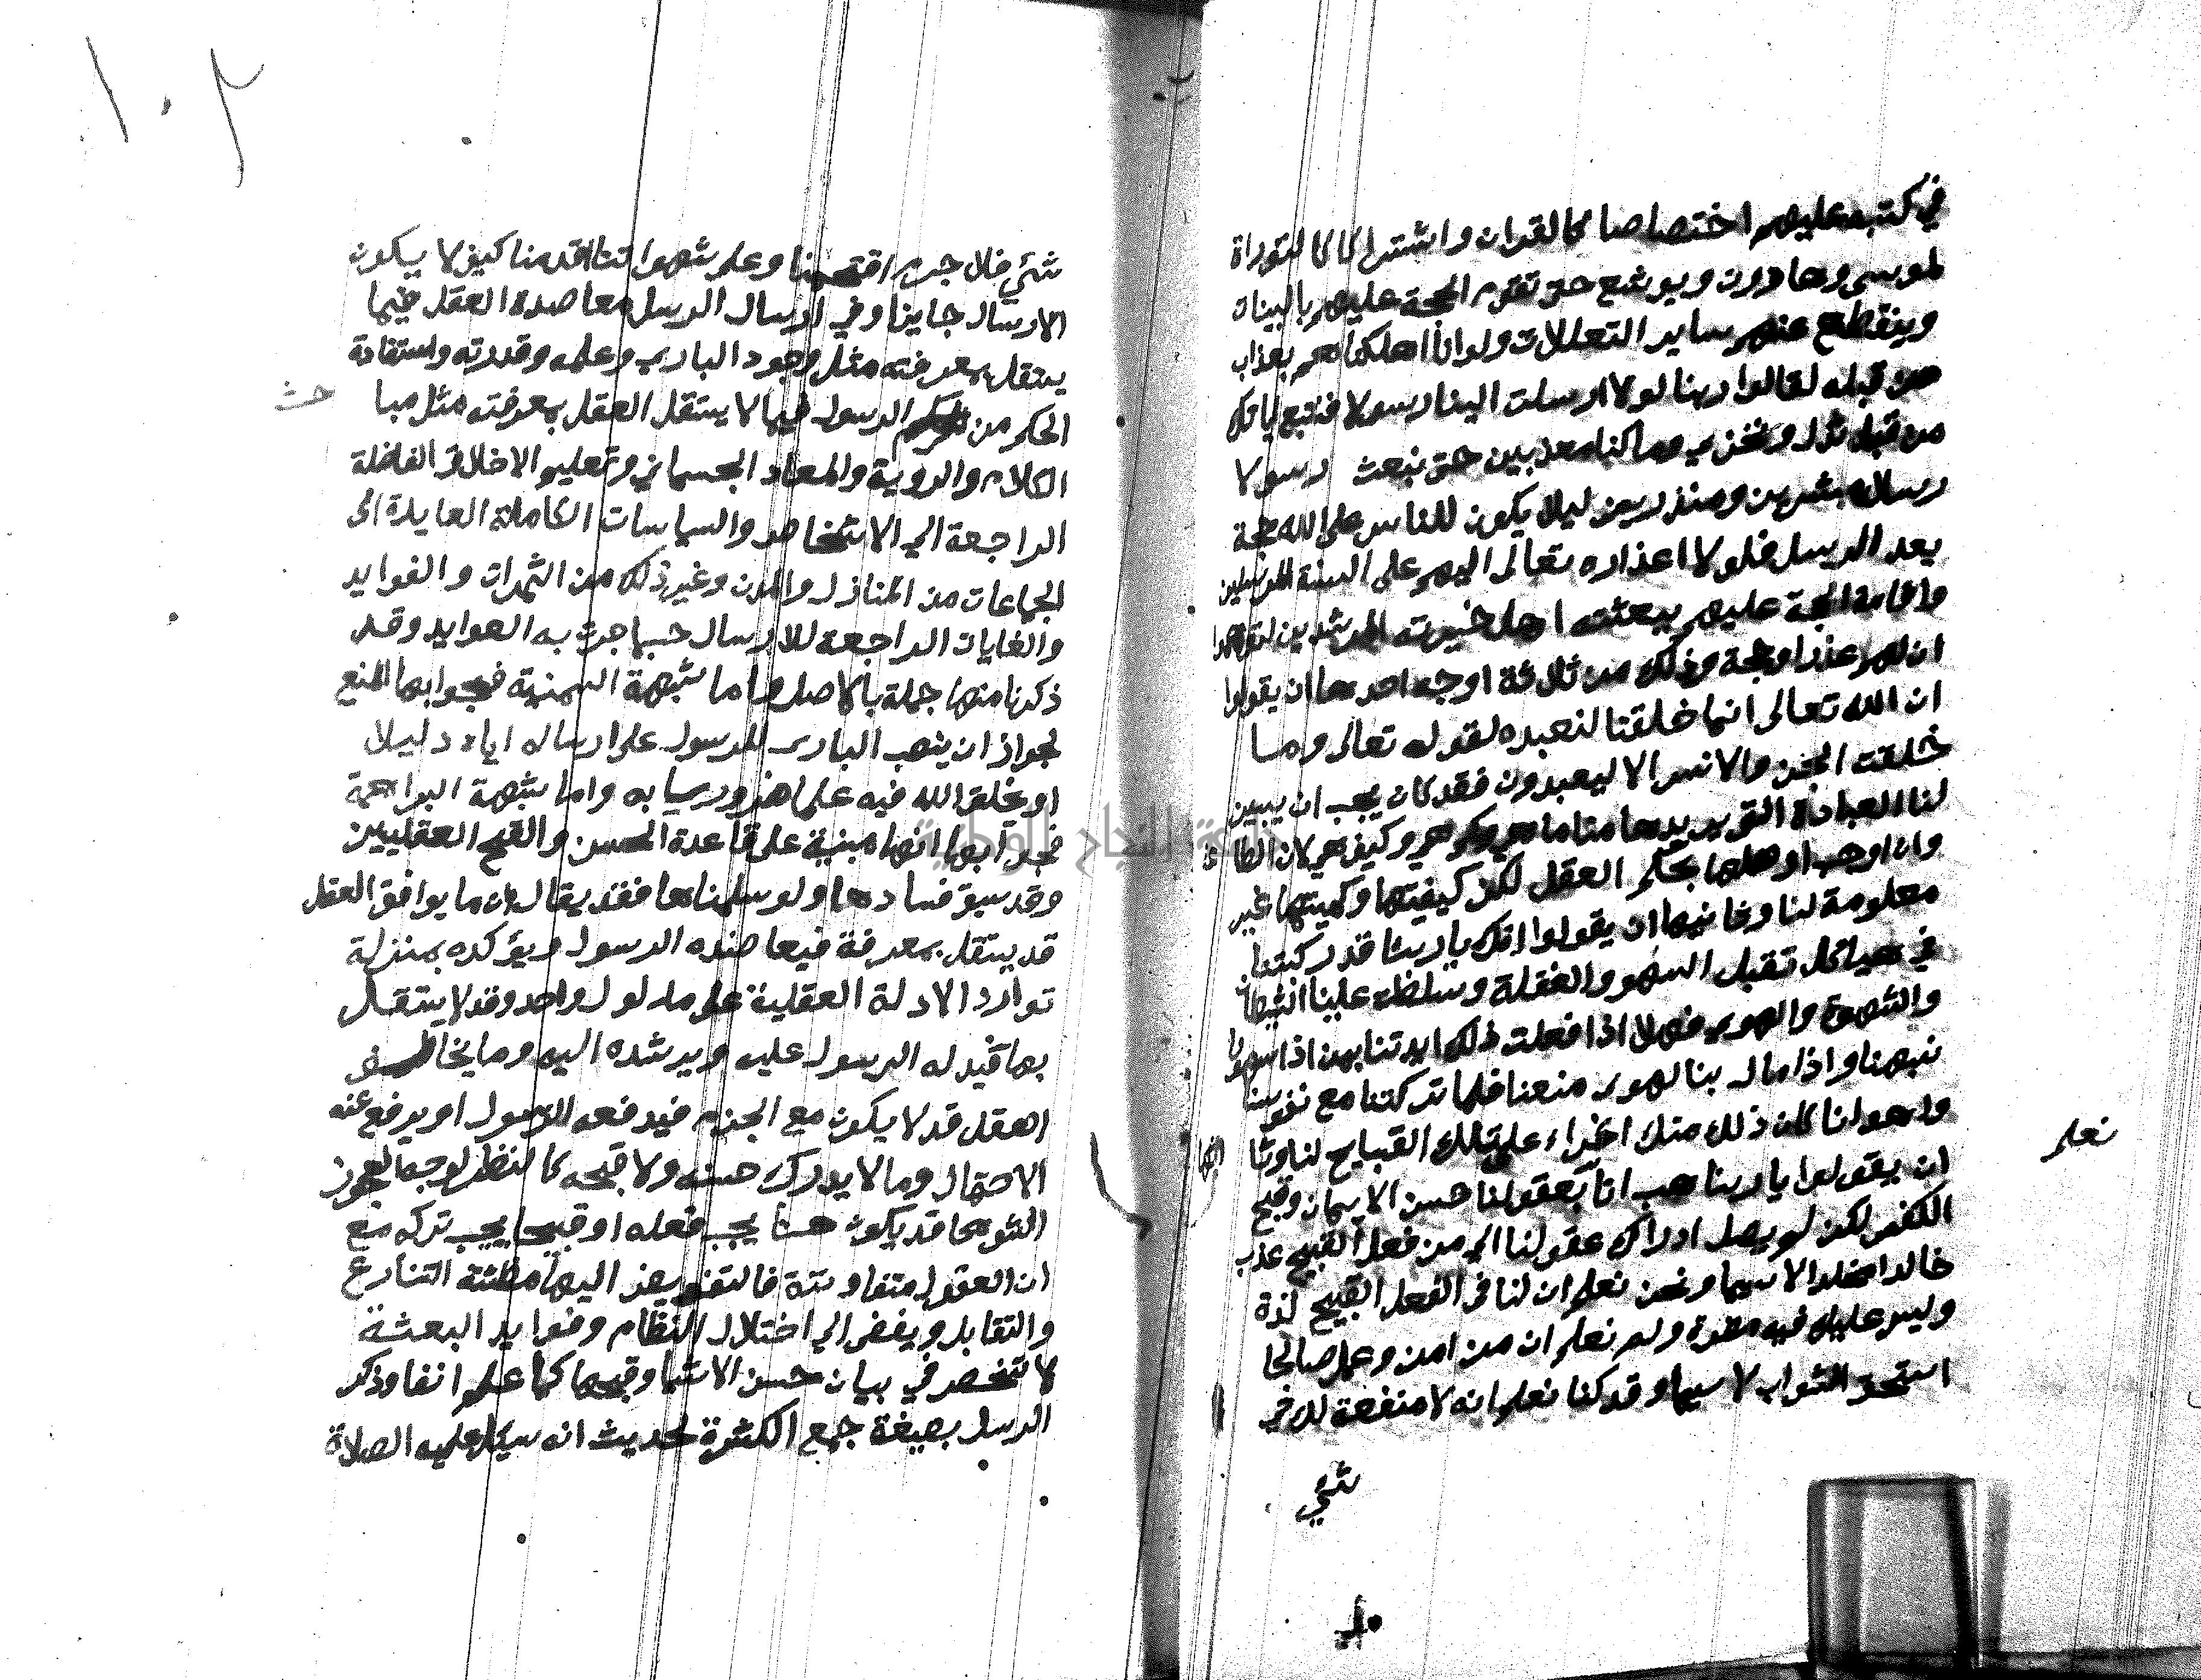 في كتبه عليهم اختصاصا كالقران واشتراكا كالتوراة
لموسى وهارون ويوشع حتى تقوم الحجة عليهم بالبينات
وينقطع عنهم ساير التعللات ولو انا اهلكناهم بعذاب
من قبله لقالوا ربنا لولا ارسلت الينا رسولا فنتبع اياتك
من قبل نذل ونخزى وما كنا معذبين حتى نبعث رسولا
رسلا مبشرين ومنذرين ليلا يكون للناس على الله حجة
بعد الرسل فلولا اعذاره تعالى اليهم على السنة المرسلين
واقامة الحجة عليهم ببعثته اهل خيرته المرشدين لتوهموا
ان لهم عذرا وحجة وذلك من ثلاثة اوجه احدها ان يقولوا
ان الله تعالى انما خلقنا لنعبده لقوله تعالى وما
خلقت الجن والانس الا ليعبدون فقد كان يجب ان يبين
لنا العبادة التي يريدها منا ما هي وكم هي وكيف هي لان الطاعة
وان وجب اصلها بحكم العقل لكن كيفيتها وكميتها غير
معلومة لنا وثانيها ان يقولوا انك يا ربنا قد ركبتنا
في هياكل تقبل السهو والغفلة وسلطت علينا الشيطان
والشهوة والهوى فهلا اذا فعلت ذلك ايدتنا بمن اذا سهونا
نبهنا واذا مال بنا الهوى منعنا فلما تركتنا مع نفوسنا
واهوانا كان ذلك منك اغراء على تلك القبايح لنا وثالثها
ان يقولوا يا ربنا هب انا بعقولنا حسن الايمان وقبح
نعلم
الكفر لكن لم يصل ادراك عقولنا الى من فعل القبيح عذب
خالدا مخلدا لا سيما ونحن نعلم ان لنا في الفعل القبيح لذة
وليس عليك فيه مضرة ولم نعلم ان من امن وعمل صالحا
استحق الثواب لا سيما وقد كنا نعلم انه لا منفعة لك في
شئ
١٠٢
شئ فلا جرم اقتحمنا وعلى شهواتنا اقدمنا كيف لا يكون
الارسال جايزا وفي ارسال الرسل معاضدة العقل فيما
يستقل بمعرفته مثل وجود الباري وعلمه وقدرته واستفادة
الحكم من الرسول فيما لا يستقل العقل بمعرفته مثل مباحث
الكلام والروية والمعاد الجسماني وتعليم الاخلاق الفاضلة
الراجعة الى الاشخاص والسياسات الكاملة العايدة الى
الجماعات من المنازل والمدن وغير ذلك من الثمرات والفوايد
والغايات الراجعة للارسال حسبما جرت به العوايد وقد
ذكرنا منها جملة بالاصل واما شبهة السمنية فجوابها المنع
لجواز ان ينصب الباري للرسول على ارساله اياه دليلا
او يخلق الله فيه علما ضروريا به واما شبهة البراهمة
فجوابها انها مبنية على قاعدة الحسن والقبح العقليين
وقد سبق فسادها ولو سلمناها فقد يقال ان ما يوافق العقل
قد يستقل بمعرفة فيعاضده الرسول ويؤكده بمنزلة
توارد الادلة العقلية على مدلول واحد وقد لا يستقل
بها فيدله الرسول عليه ويرشده اليه وما يخالف
العقل قد لا يكون مع الجزم فيدفعه الرسول او يرفع عنه
الاحتمال وما لا يدرك حسنه ولا قبحه كالنظر لوجه العجوز
الشوها قد يكون حسنا يجب فعله او قبيحا يجب تركه مع
ان العقول متفاوتة فالتفويض اليها مظنة التنازع
والتقابل ويفضي الى اختلال النظام وفوايد البعثة
لا تنحصر في بيان حسن الاشيا وقبحها كما علم انفا وذكر
الرسل بصيغة جمع الكثرة لحديث انه سيل عليه الصلاة
جامعة النجاح الوطنية